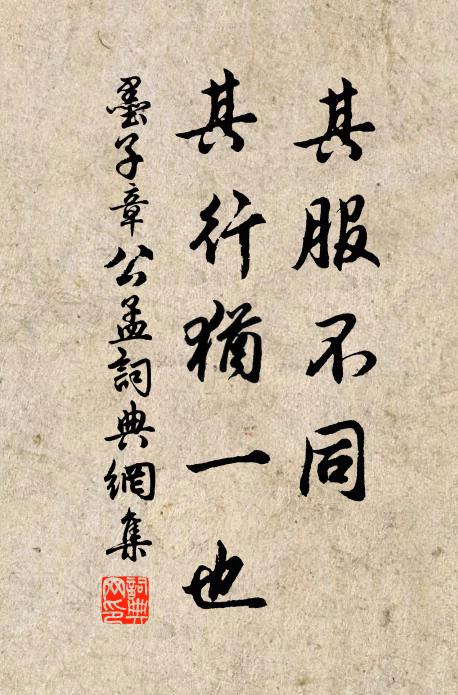 其服不同
其行猶一也
墨子章公孟詞典網集
詞典網印